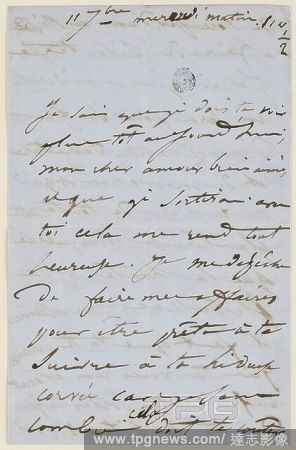 11 7bre mercredi matin 11 h ½
Je sais que je dois te voir
plus tôt aujourd'hui,
mon cher amour bien aimé,
et que je sortirai avec
toi cela me rend tout
heureuse. Je me dépêche
de faire mes affaires
pour être prête à te
suivre à ta hideuse
corvée car je sais
combien elle doit te coûter
TPG
www.tpgnews.com/ 達志影像